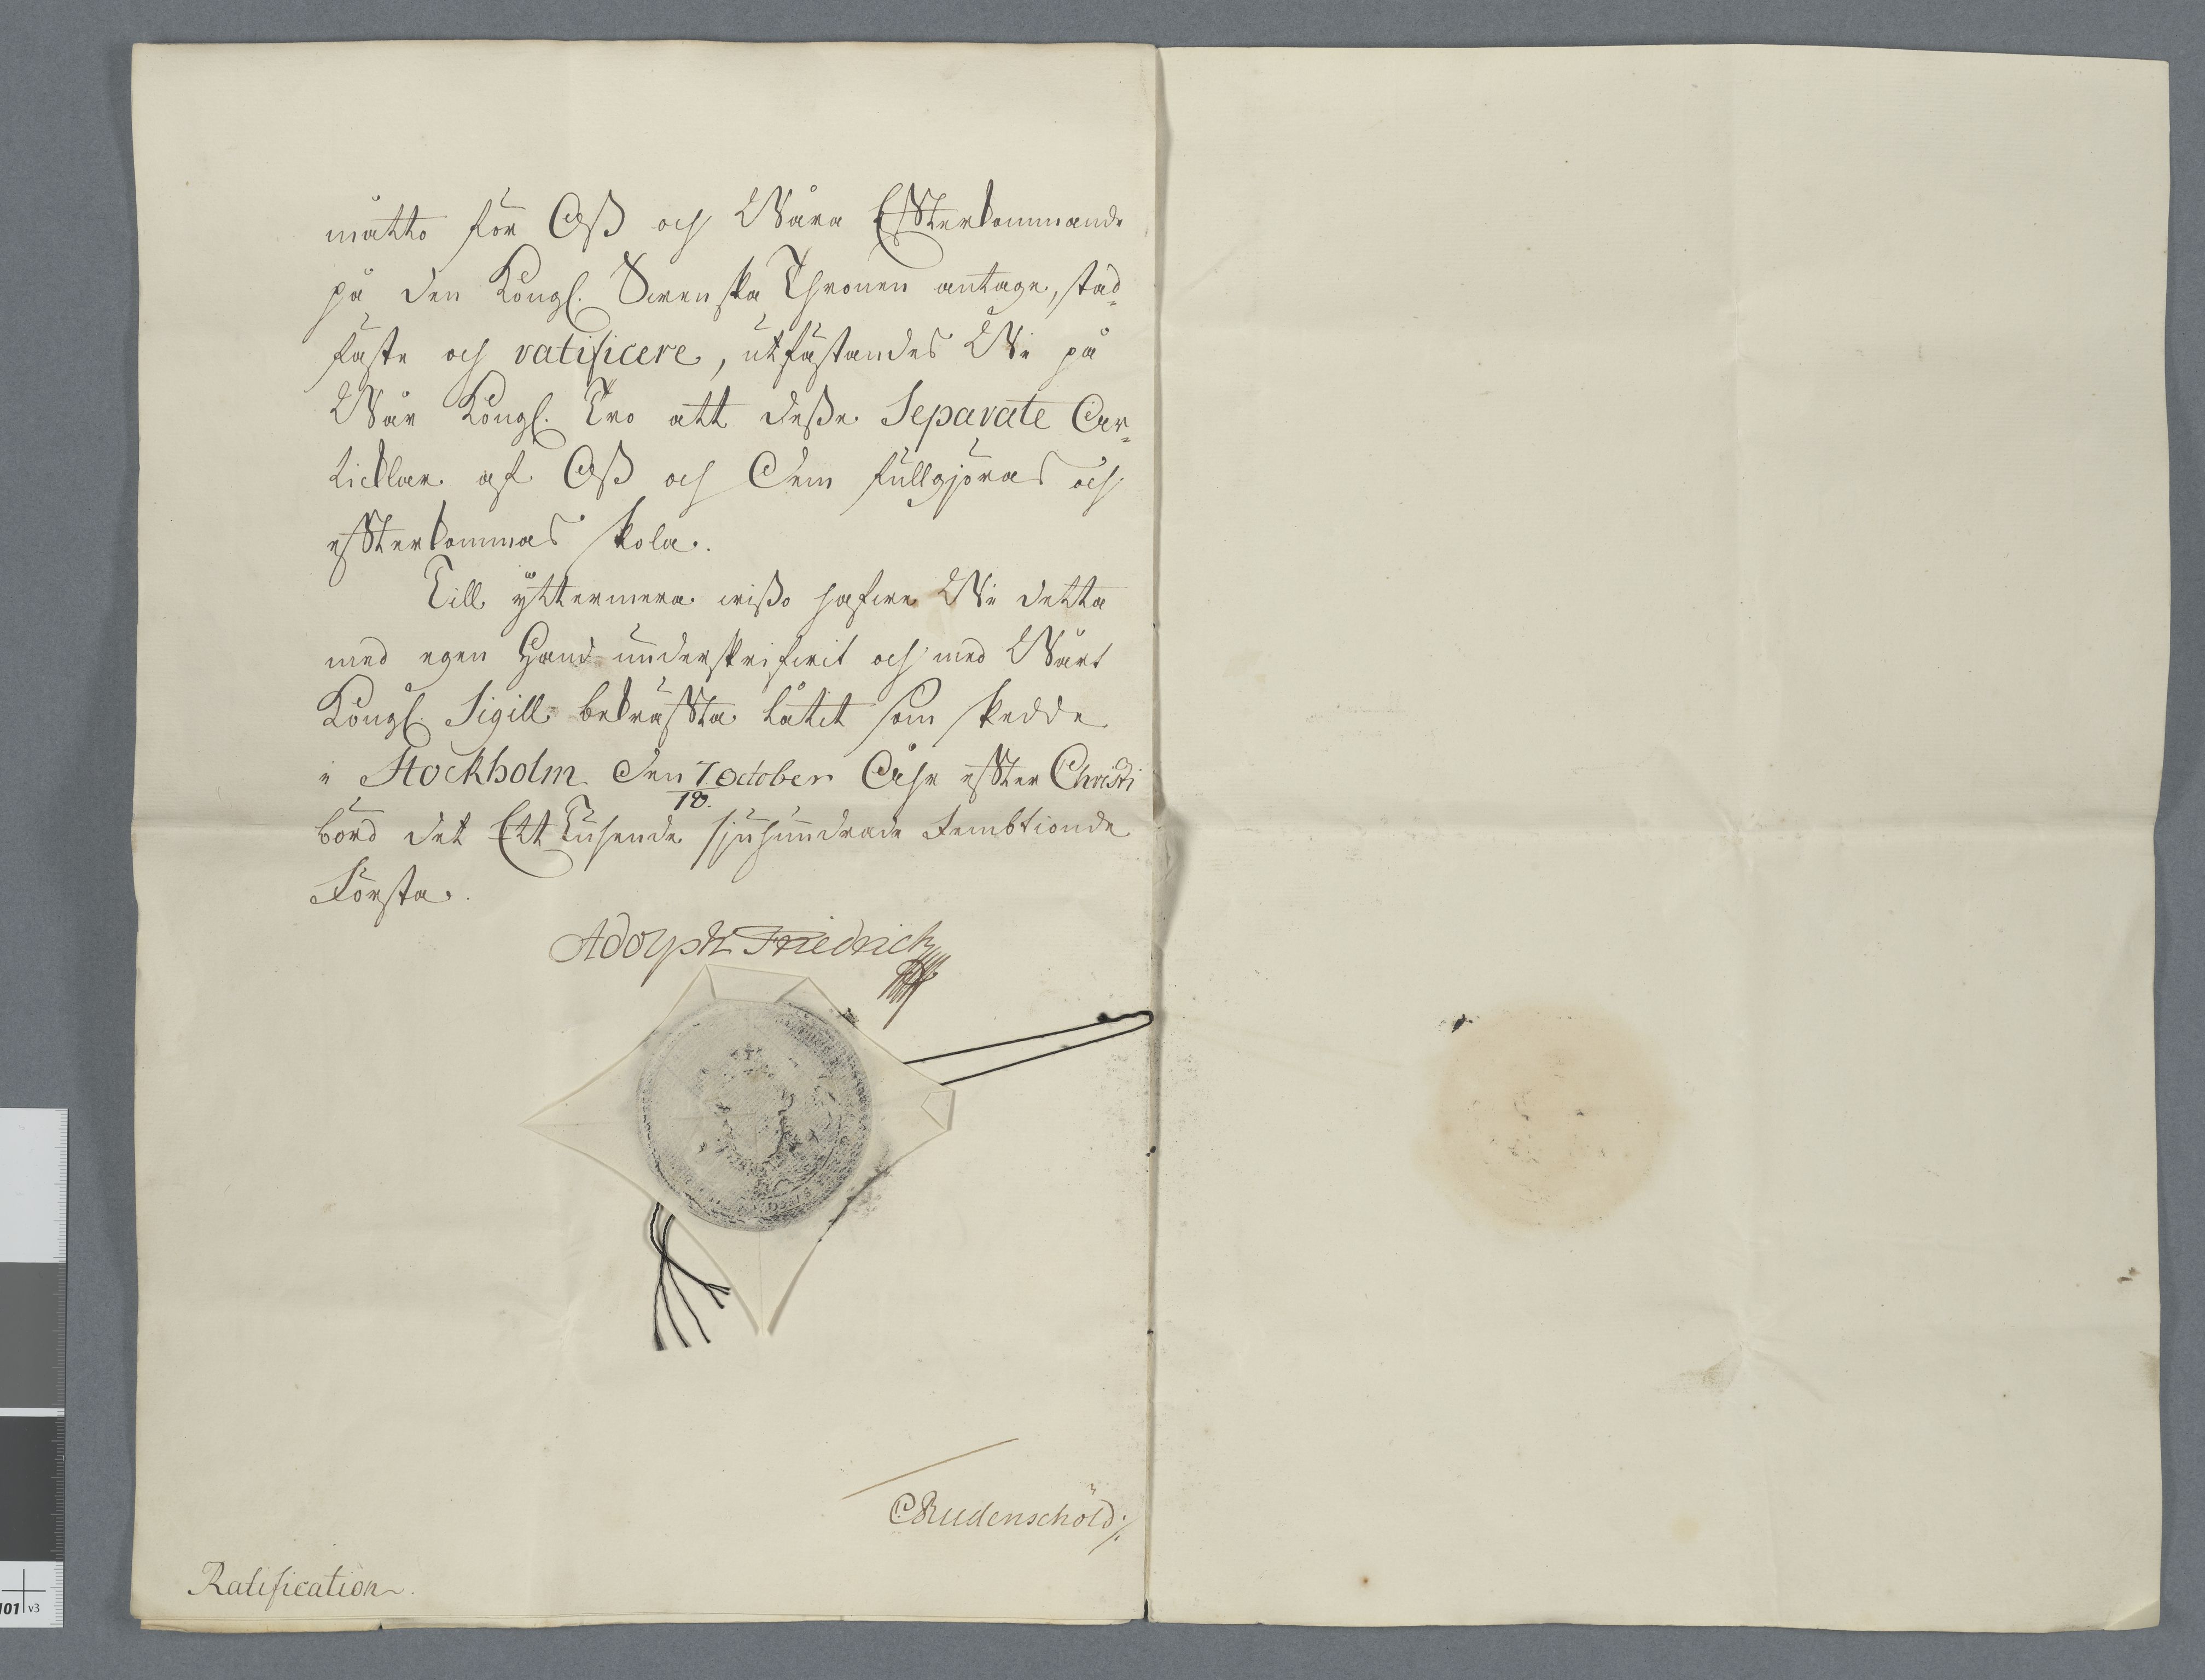 måtto för Oß och Wåra Effterkommande
på den Kongl. Swenska Thronen antage, stad-
fäste och ratificere, utfästandes Wi på
Wår Kongl. Tro att deße Separate Ar-
ticklar af Oß och Dem fullgjöras och
effterkommas skola.
Till yttermera wißo hafwe Wi detta
med egen Hand underskrifwit och med Wårt
Kongl. Sigill bekräffta låtit som skedde
i Stockholm den 7 October Åhr effter Christi
18.
bord det Ett Tusende sjuhundrade Fembtionde
Första.
Adolph Friedrich
CRudenschöld
Ratification.
101 v3